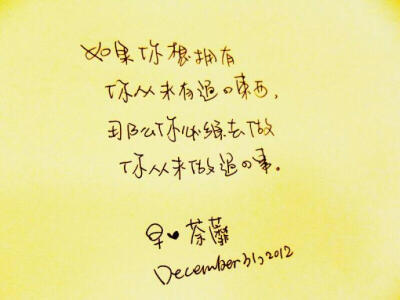 如果你想拥有
你从未有过の東西,
那么你必须去做
你从未做过の事。
早❤荼蘼
December 31, 2012